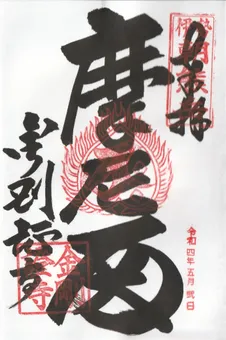 伊勢
朝熊岳
令和四年五月弐日
摩尼
金剛證寺
金剛
證寺